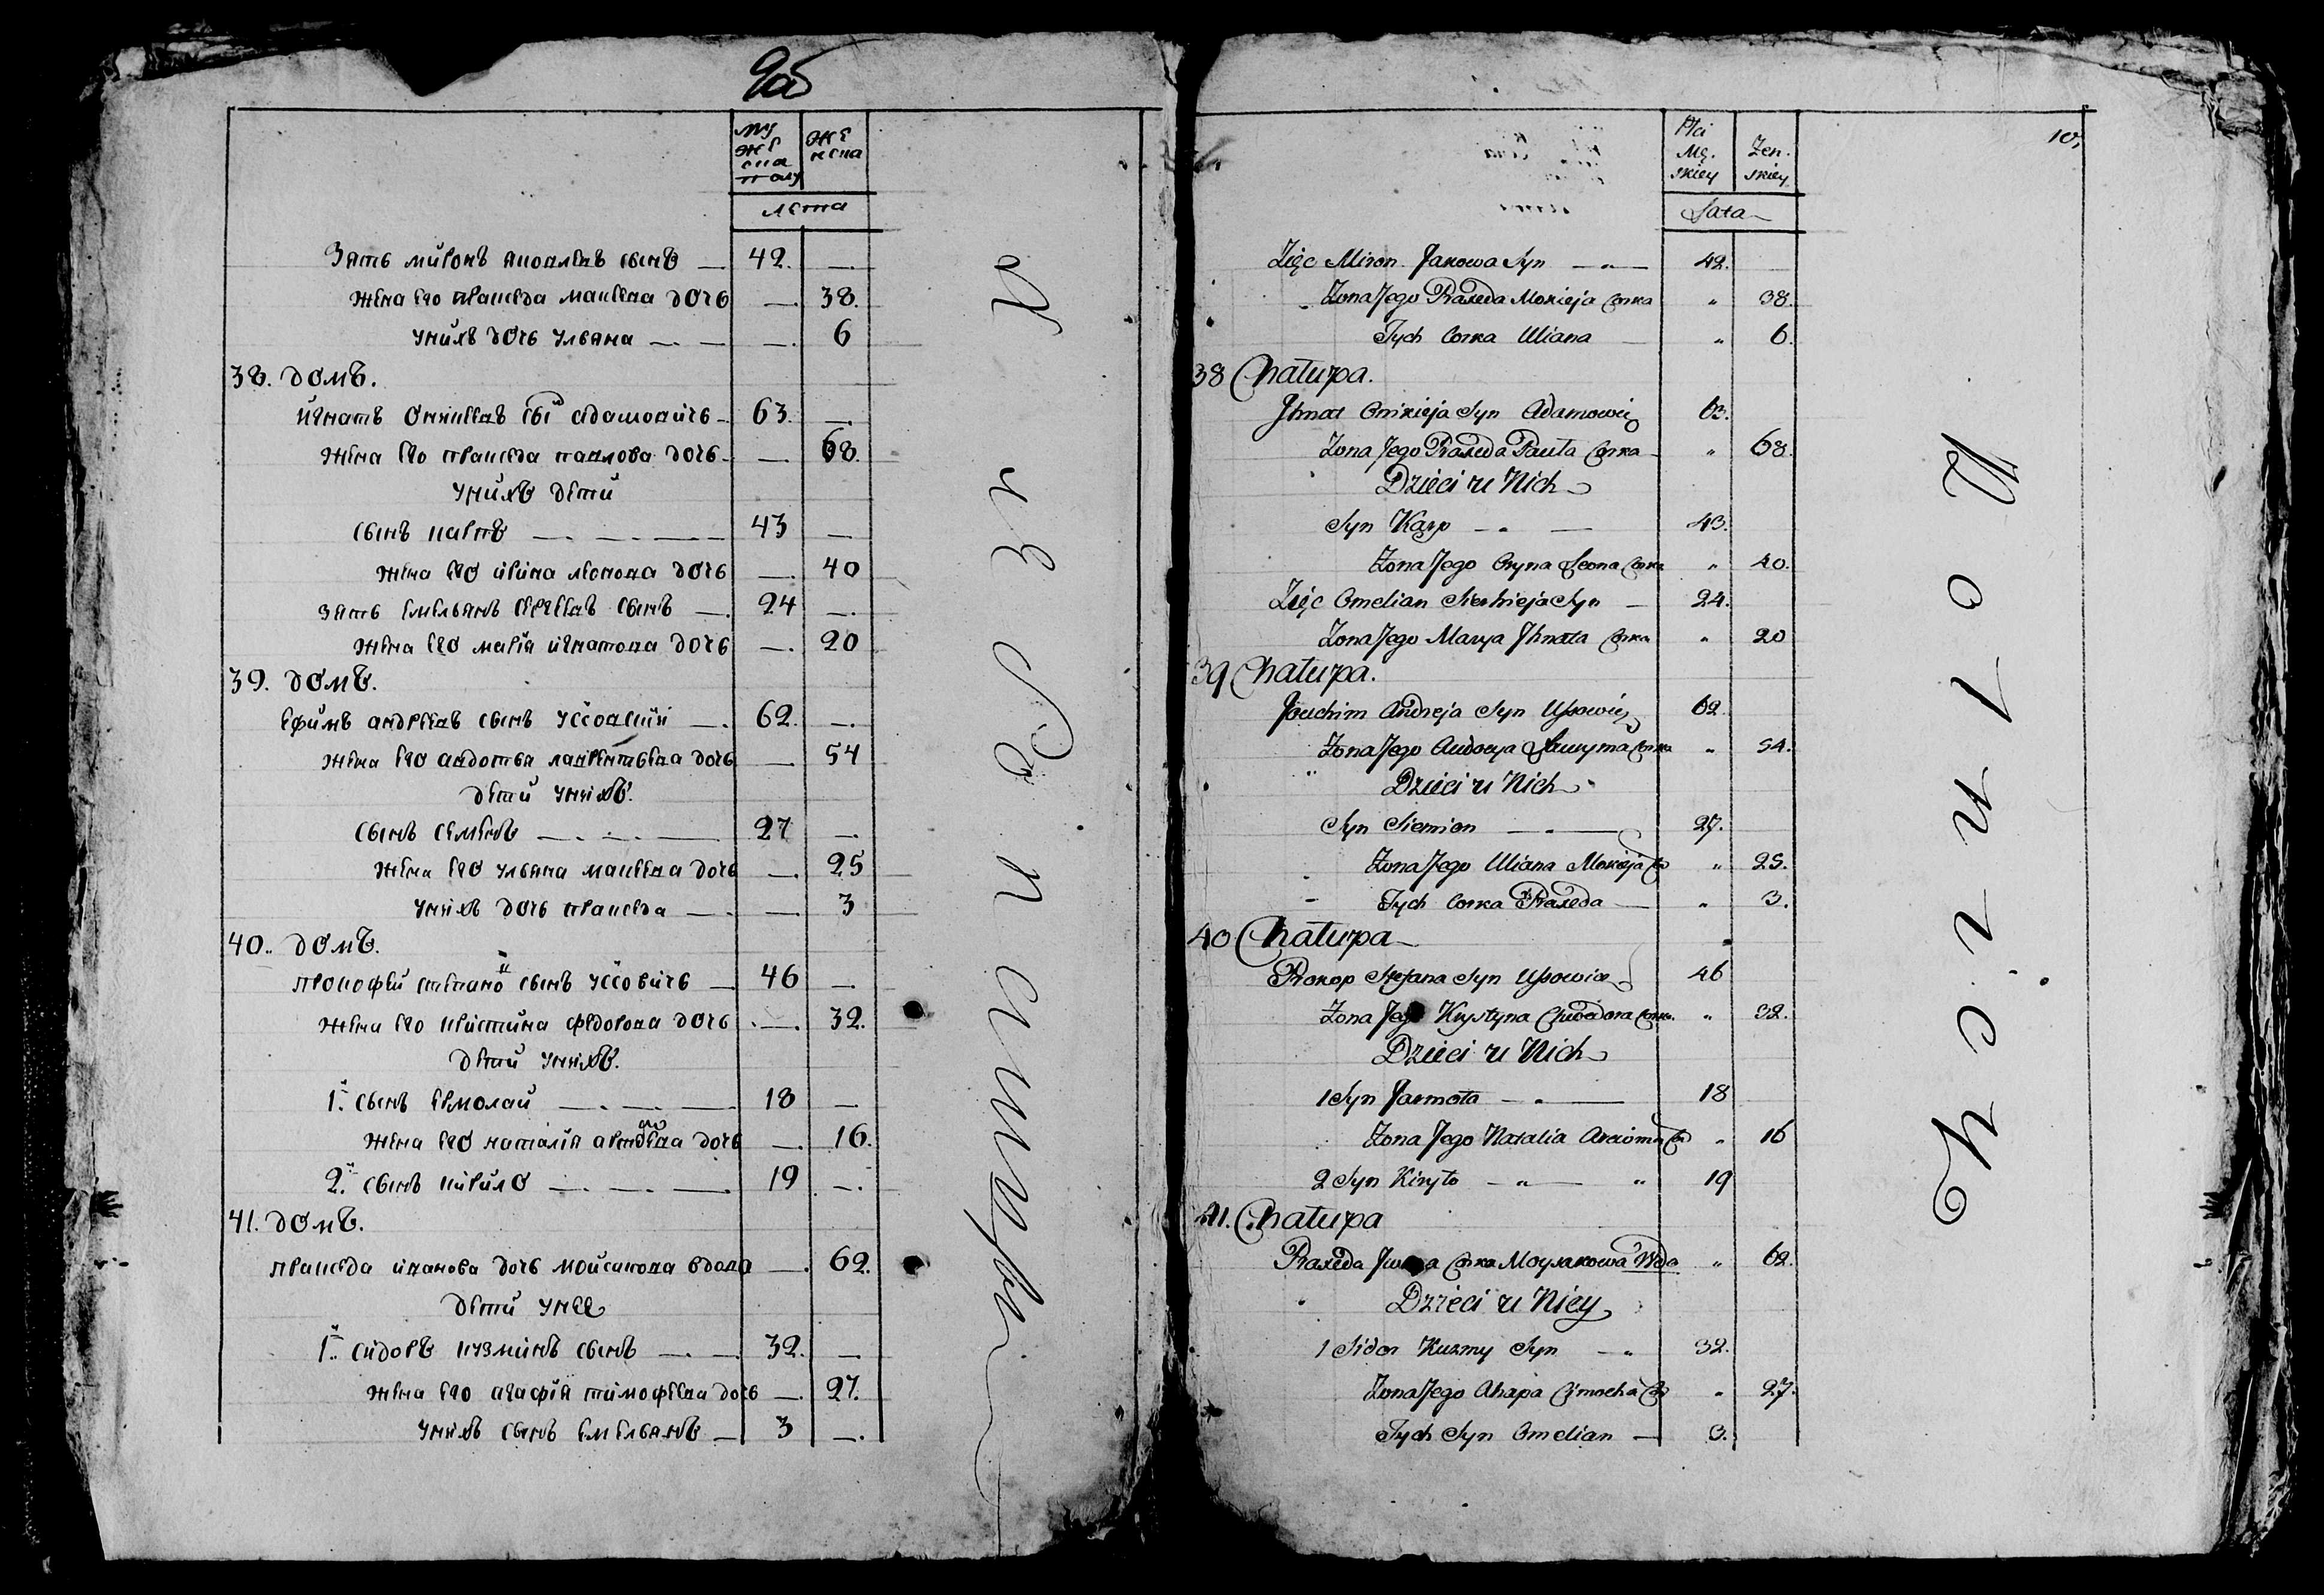 9об
мужеска полу
женска
лета
Зять миронъ яковлевъ сынъ — 42. —
жена его праскеда макеева дочь — 38.
у нихъ дочь ульяна — — 6
38. домъ.
игнатъ омикеевъ сы̃ адамовичъ — 63. —
жена его праскеда павлова дочь — — 68.
у нихъ дети
сынъ карпъ — 43 —
жена его ирина леонова дочь — 40
зять емельянъ сергеевъ сынъ — 24 —
жена его мария игнатова дочь — 20
39. домъ.
ефимъ андреевъ сынъ уссовский — 62. —
жена его авдотья лаврентьева дочь — 54
дети у нихъ.
сынъ семенъ — 27 —
жена его ульяна макеева дочь — 25
у нихъ дочь праскеда — — 3
40. домъ.
прокофей степано̃ сынъ уссовичъ — 46 —
жена его кристина федорова дочь — 32.
дети у нихъ.
1й. сынъ ермолай — 18 —
жена его наталия дочь — 16.
2й. сынъ кирило — 19 —
41. домъ.
праскеда иванова дочь мойсакова вдова — 62.
дети у нее
1й. сидоръ кузминъ сынъ — 32. —
жена его агафия тимофеева дочь — 27.
у нихъ сынъ емельянъ — 3 —
10,
Płci Mę. skiey
Żen. skiey
Lata
Zięc Miron Jakowa Syn — 42.
Żona Jego Praxeda Mokieja Corka " 38.
Tych Corka Uliana — " 6.
38 Chałupa.
Jhnat Omikieja Syn Adamowicz 63.
Żona Jego Praxeda Pauła Corka — " 68.
Dzieci u Nich
Syn Karp — 43.
Żona Jego Oryna Leona Corka " 40.
Zięc Omelian Sierhieja Syn — 24.
Żona Jego Marya Jhnata Corka " 20
39 Chałupa.
Jouchim Andreja Syn Ussowicz 62.
Żona Jego Audocya Ławryna Corka " 54.
Dzieci u Nich
Syn Siemion — 27.
Żona Jego Uliana Mokieja Co " 25.
Tych Corka Praxeda — " 3.
40 Chałupa —
Prokop Stefana Syn Ussowicz 46
Żona Jego Krystyna Chwedora Corka. " 32.
Dzieci u Nich
1 Syn Jarmoła — 18
Żona Jego Natalia Co " 16
2 Syn Kiryło — " — " 19
41. Chałupa
Praxeda Corka Moysakowa Wda " 62.
Dzieci u Niey
1 Sidor Kuzmy Syn — " 32.
Żona Jego Ahapa Cimocha Co " 27.
Tych Syn Omelian — 3.